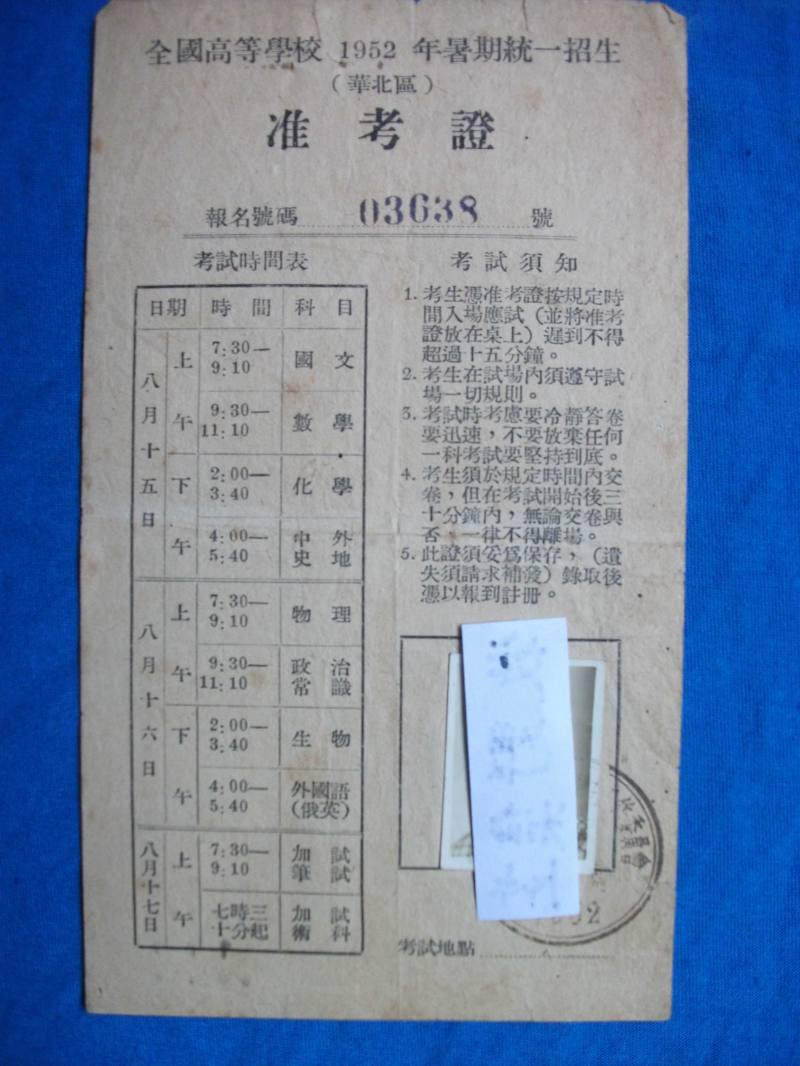 全國高等學校 1952 年暑期統一招生
（華北區）
准考證
報名號碼 03638 號
考試時間表
日期 時間 科目
八月十五日 上午 7:30—9:10 國文
9:30—11:10 數學
下午 2:00—3:40 化學
4:00—5:40 中外史地
八月十六日 上午 7:30—9:10 物理
9:30—11:10 政治常識
下午 2:00—3:40 生物
4:00—5:40 外國語（俄英）
八月十七日 上午 7:30—9:10 加試筆試
七時三十分起 加試術科
考試須知
1. 考生憑准考證按規定時
間入場應試（並將准考
證放在桌上）遲到不得
超過十五分鐘。
2. 考生在試場內須遵守試
場一切規則。
3. 考試時考慮要冷靜答卷
要迅速，不要放棄任何
一科考試要堅持到底。
4. 考生須於規定時間內交
卷，但在考試開始後三
十分鐘內，無論交卷與
否，一律不得離場。
5. 此證須妥爲保存，（遺
失須請求補發）錄取後
憑以報到註冊。
考試地點